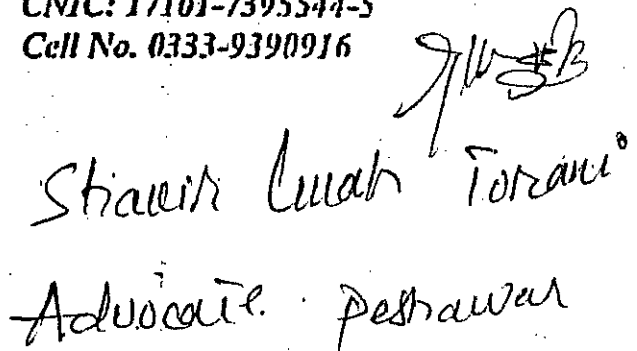 CNIC: 17101-7395544-5
Cell No. 0333-9390916
Torani
Advocate. Peshawar